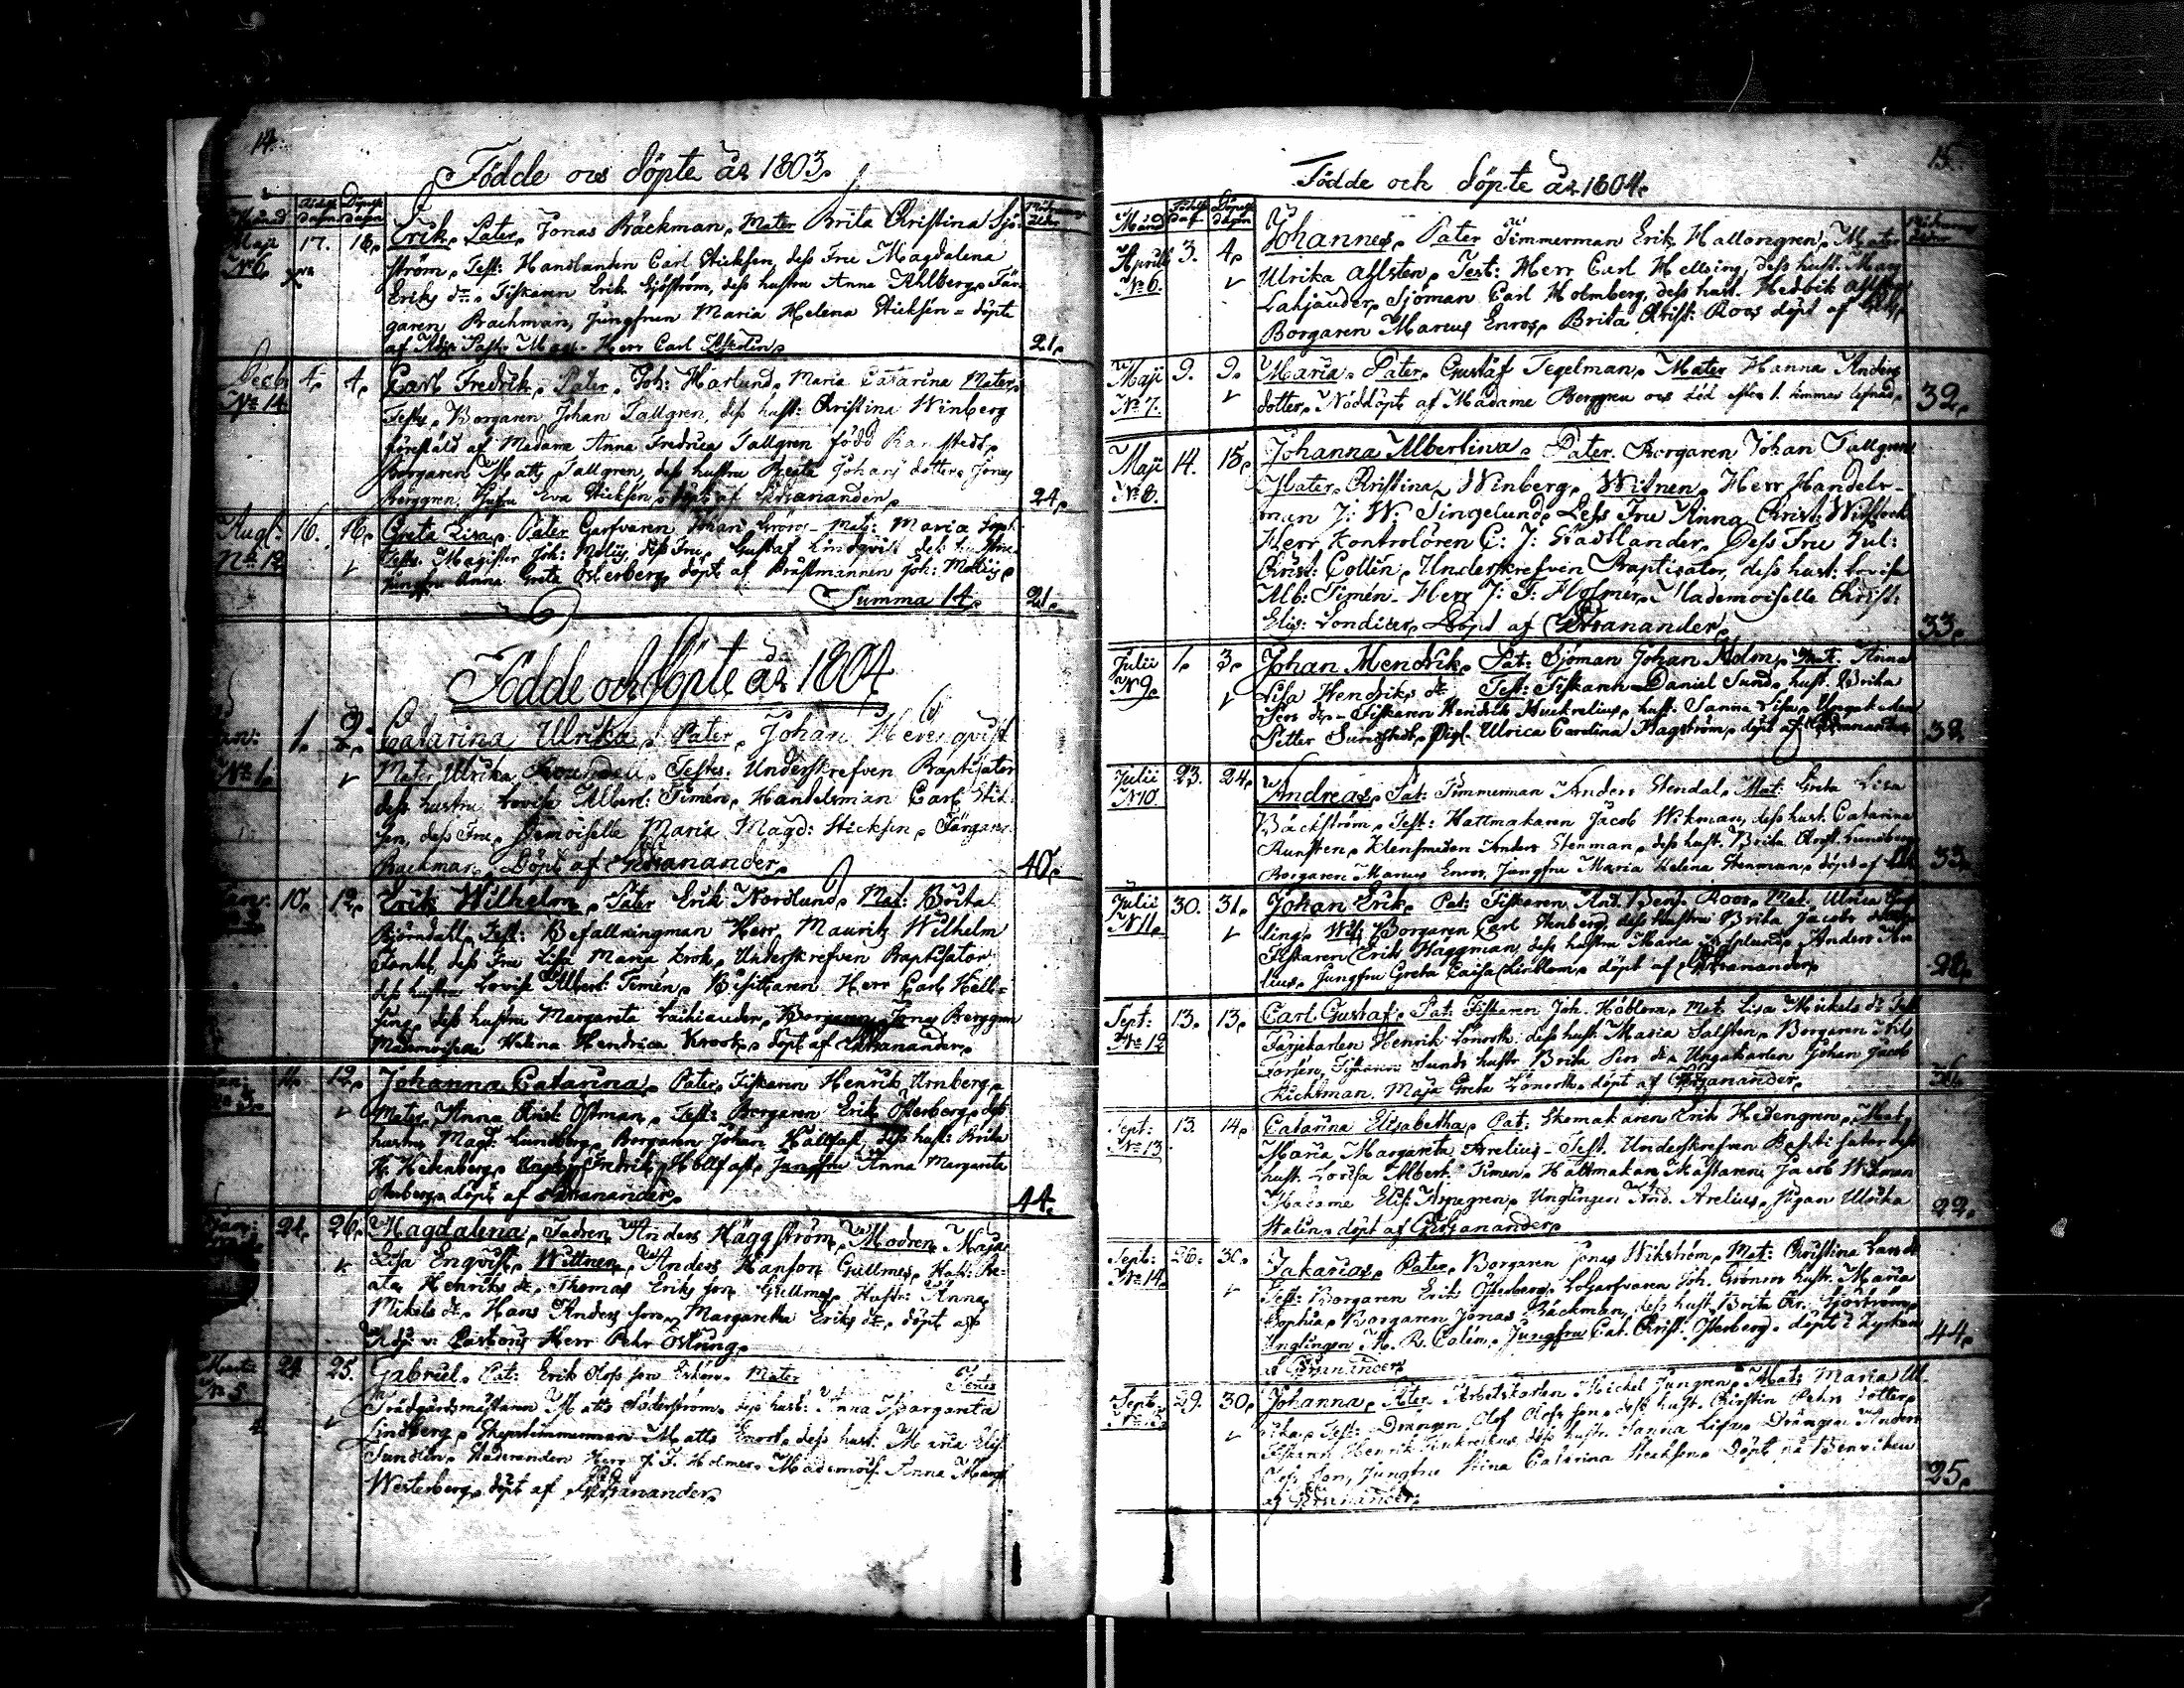 14.
Födde och döpte år 1803.
Månad Födelse dagen Döpelse dagen
Maji 17. 18. Erik. Pater. Jonas Bäckman. Mater Brita Christina Sjö-
No 6. ström. Test: Handlanden Carl Sticksén, dess Fru Magdalena
Eriks dr. Fiskaren Erik Sjöström, dess hustru Anna Ahlberg. Fär-
garen Bachman, Jungfrun Maria Helena Sticksén = döpte
af Adj. Past. Mag. Herr Carl 21.
Decb. 4. 4. Carl Fredrik. Pater. Joh: Harlund. Maria Catarina Mater.
No 14. Testes. Borgaren Johan Tallgren, dess hust: Christina Winberg
föreståld af Madame Anna Fredrica Tallgren född
Borgaren Matts Tallgren, dess hustru Beata Johans dotter. Jonas
Berggren. Eva Sticksén. döpt af Chrsananden. 24.
Augl: 16. 16. Greta Lisa. Pater Garfvaren Johan Mat: Maria
No 12 Testes. Magister Joh: dess Fru. Gustaf Lindqvist dess hustru.
Jungfru Anna Greta Österberg. döpt af Prästmannen Joh:
Summa 14. 21.
Födde och döpte år 1804.
1. 2. Catarina Ulrika. Pater. Johan
No 1. Mater Ulrika Testes: Underskrefven Baptisator
dess hustru Lovisa Albert: Timén. Handelsman Carl Stik-
sen, dess Fru. Demoiselle Maria Magd: Sticksen. Färgaren
Backman. Döpt af Chrsanander. 40.
Jan: 10. 12. Erik Wilhelm. Pater Erik Nordlund. Mat: Brita
Björndahl. Test: Befallningman Herr Mauritz Wilhelm
dess Fru Lisa Maria Krok. Underskrefven Baptisator
dess hustru Lovisa Albert: Timén. Visitaren Herr Carl Hell-
sing. dess hustru Margareta Borgaren Jonas Berggren
Mademoiselle Helena Hendrica Krook. döpt af Chrsanander.
Jan: 11. 12. Johanna Catarina. Pater. Fiskaren Henrik Urnberg.
Mater. Anna Christ: Östman. Test: Borgaren Erik Österberg. dess
hustru Magd: Lundberg. Borgaren Johan Hallfast, dess hust: Brita
Hr. Hedenberg. Fredrik Hallfast. Jungfru Anna Margareta
Österberg. döpt af Chrsanander. 44.
Jan: 24. 26. Magdalena. Fadren Anders Häggström. Modren Maja
Lisa Enqvist. Wittnen. Anders Hanson Gullmes. Hust: Be-
ata Henriks dr. Thomas Eriks son Gullmes. Hustr: Anna
Mikels dr. Hans Anders son. Margaretha Eriks dr. döpt af
Adj. v: Pastoris Herr Pehr Östring.
Martii 24. 25. Gabriel. Pat: Erik Olofs son Mater Testes
No 5. Trädgårdsmästaren Matts Söderström. dess hust: Anna Margareta
Lindberg. Skepstimmerman Matts dess hust. Maria Elis:
Sundlin. Studeranden Herr J. F. Holmer. Mademois. Anna Marg:
Westerberg. döpt af Chrsanander.
15.
Födde och döpte år 1804.
Månad Födelse dag Döpelse dagen
Aprilis 3. 4. Johannes. Pater Timmerman Erik Hallongren. Mater
No 6. Ulrika Ahlsten. Test: Herr Carl Hellsing, dess hust. Marg
Sjöman Carl Holmberg, dess hust. Hedvik
Borgaren Marcus Enros. Brita Christ: Roos döpt af
Maji 9. 9. Maria. Pater. Gustaf Tegelman. Mater Hanna Anders
No 7. dotter. Nöddöpt af Madame Berggren och död efter 1. timmas lefnad. 32.
Maji 14. 15. Johanna Albertina. Pater. Borgaren Johan Tallgren
No 8. Mater. Christina Winberg. Witnen. Herr Handels-
man J: W: Tingelund. Dess Fru Anna Christ:
Herr Kontrolören C: J: Stadtlander. Dess Fru Jul:
Christ: Collin. Underskrefven Baptisator, dess hust: Lovisa
Alb: Timén. Herr J: F: Holmer. Mademoiselle Christ:
Elis: Döpt af Chrsanander. 33.
Julii 1. 3. Johan Hendrik. Pat: Sjöman Johan Holm. Mat. Anna
No 9. Lisa Hendriks dr. Test: Fiskaren Daniel Sund. hust. Brita
Pers dr. Fiskaren Hendrik hust: Sanna Lisa. Ungakarlen
Petter Sundstedt. Pig. Ulrica Carolina Hagström. döpt af Chrsanander 38
Julii 23. 24. Andreas. Pat: Timmerman Anders Stendal. Mat: Greta Lisa
No 10 Bäckström. Test: Hattmakaren Jacob Wikman, dess hust. Catarina
Runsten. Klensmeden Anders Stenman. dess hust. Brita Christ. Lundberg.
Borgaren Marcus Enros. Jungfru Maria Helena Stenman. döpt af 33.
Julii 30. 31. Johan Erik. Pat: Fiskaren And. Benj. Roos. Mat. Ulrica
No 11. Borgaren Carl Stenberg, dess hustru Brita Jacobs dotter
Fiskaren Erik Haggman, dess hustru Maria Asplund. Anders
Jungfru Greta Caisa Lindblom. döpt af Chrsanander. 28.
Sept: 13. 13. Carl Gustaf. Pat: Fiskaren Joh. Höblom. Mat. Lisa Mickels dr Test
No 12 Färjekarlen Henrik Lönroth. dess hust: Maria Salsten. Borgaren
Forsén. Fiskaren Sunds hustr Brita Pers dr. Ungakarlen Johan Jacob
Maja Greta Lönroth. döpt af Chrsanander. 36.
Sept: 13. 14. Catarina Elisabetha. Pat: Skomakaren Erik Hedengren. Mat.
No 13 Maria Margareta Arelius. Test. Underskrefven Baptisator dess
hust. Lovisa Albert: Timen. Hattmakare Mästaren Jacob Wikman
Madame Elis: Ynglingen And. Arelius. Pigan Ulrika
Stalin. döpt af Chrsanander. 22.
Sept: 26. 30. Zakarias. Pater. Borgaren Jonas Wikström. Mat: Christina
No 14. Test: Borgaren Erik Österberg. Logarfvaren Joh. hustr. Maria
Sophia. Borgaren Jonas Bäckman, dess hust. Brita Chr. Sjöström.
Ynglingen M. R. Calén. Jungfru Cat. Christ. Österberg. döpt i Kyrkan 44.
af Chrsanander.
Sept. 29. 30. Johanna. Pater. Arbetskarlen Michel Jungren. Mat: Maria Ul-
rika. Test: Drängen Olof Olofs son. dess hust. Christin Pehrs dotter.
Fiskaren Henrik dess hustr. Sanna Lisa. Drängen Anders
Olofs Son, Jungfru Stina Catarina Sticksen. Döpt på
af Chrsanander. 25.